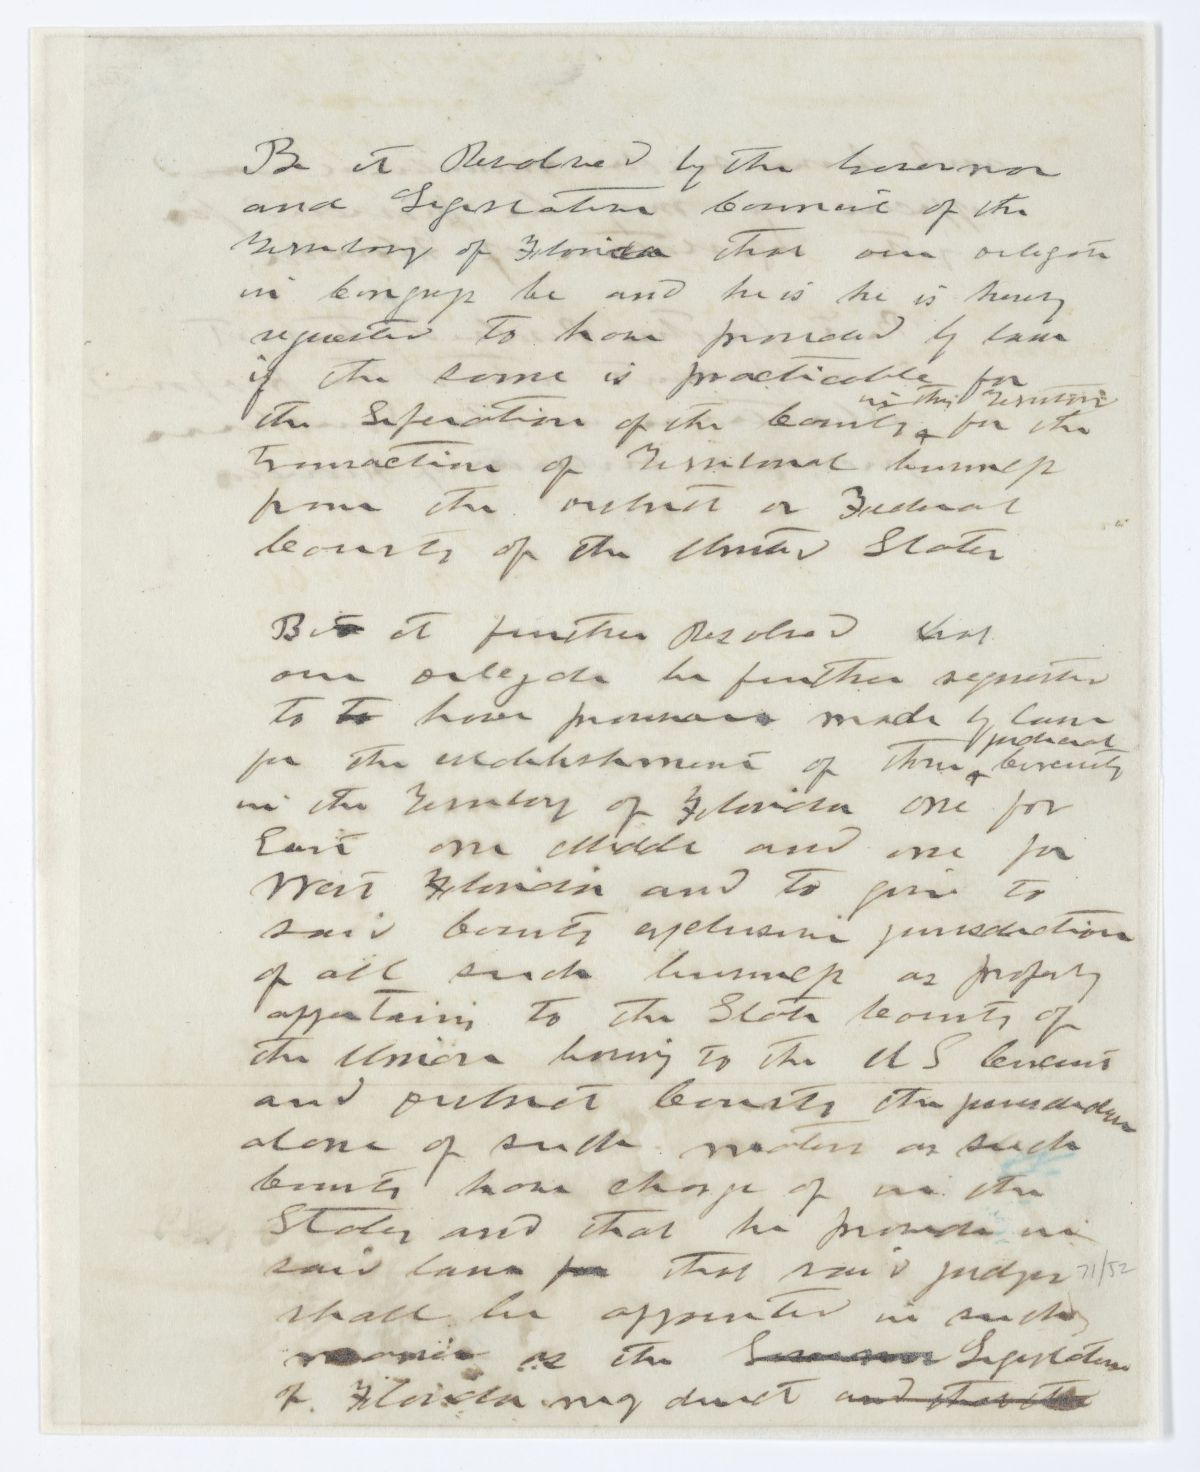 Be it Resolved by the Governor
and Legislative Council of the
Territory of Florida that our delegate
in Congress be and he is he is hereby
requested to have provided by law
if the same is practicable for
in this Territory
the Seperation of the Courts ^ for the
transaction of Territorial business
from the district or Federal
Courts of the United States
Be it further Resolved that
our delegate be further requested
to to have provisions made by law
judicial
for the establishment of three ^ Circuits
in the Territory of Florida one for
East one Middle and one for
West Florida and to give to
said Courts exclusive jurisdiction
of all such business as properly
appertains to the State Courts of
the Union leaving to the U S Circuit
and district Courts the jurisdiction
alone of such matters as such
Courts have charge of in the
States and that he provide in
said law for that said judges
71/52
shall be appointed in such
manner as the Governor Legislature
of Florida may direct and that the